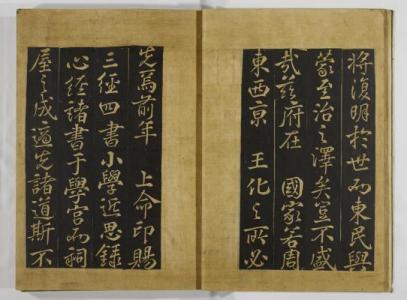 將復明於世而東民與
蒙至治之澤矣豈不盛
哉玆府在 國家若周
東西京 王化之所必
先焉前年 上命印賜
三經四書小學近思錄
心經諸書于學宮而祠
屋之成適先諸道斯不